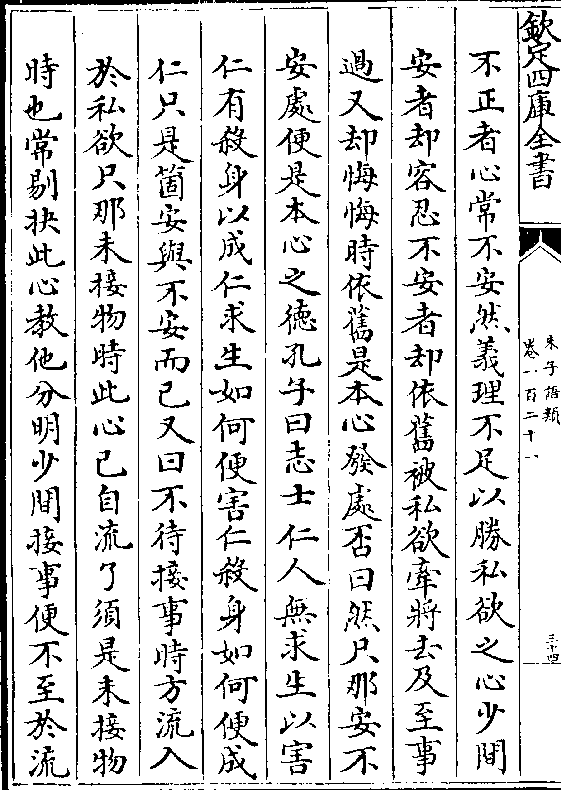 欽定四庫全書
朱子語類
卷一百二十一
三十四
不正者心常不安然義理不足以勝私欲之心少間
安者却容忍不安者却依舊被私欲牽將去及至事
過又却悔悔時依舊是本心發處否曰然只那安不
安處便是本心之德孔子曰志士仁人無求生以害
仁有殺身以成仁求生如何便害仁殺身如何便成
仁只是箇安與不安而已又曰不待接事時方流入
於私欲只那未接物時此心已自流了須是未接物
時也常剔抉此心教他分明少間接事便不至於流